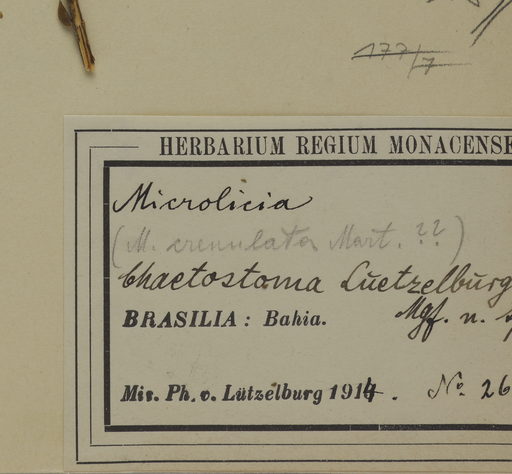 177/7
HERBARIUM REGIUM MONACENSE
Microlicia
(M. crenulata Mart. ??)
Chaetostoma Luetzelburg
BRASILIA: Bahia.
Mgf. n. s
Mis. Ph. v. Lützelburg 1914. No. 26